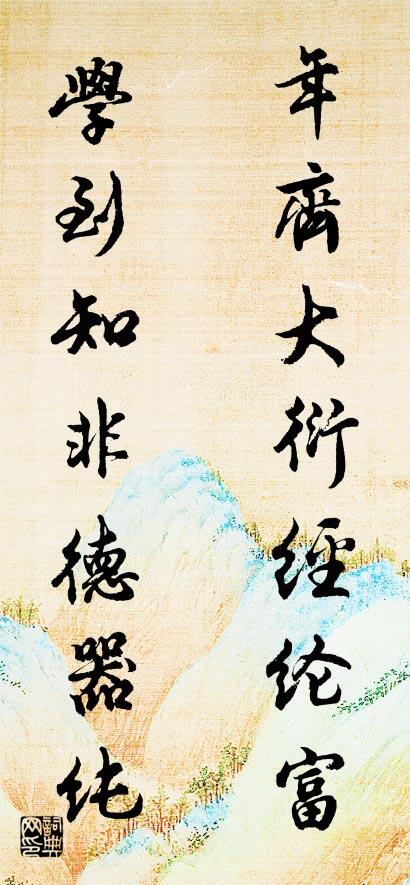 年齊大衍經纶富
學到知非德器纯
詞典网印